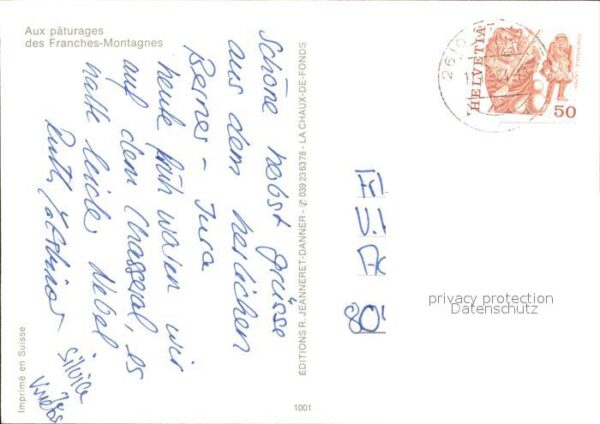 Aux pâturages
des Franches-Montagnes
Schöne Herbst grüsse
aus dem herlichen
Berner - Jura
heute früh waren wir
auf dem Chasseral, es
hatte leider Nebel
Ruth
Silvia
Imprimé en Suisse
EDITIONS R. JEANNERET-DANNER - ✆ 039 236378 - LA CHAUX-DE-FONDS
1001
2610
HELVETIA
50
Frl
V.
80
privacy protection
Datenschutz